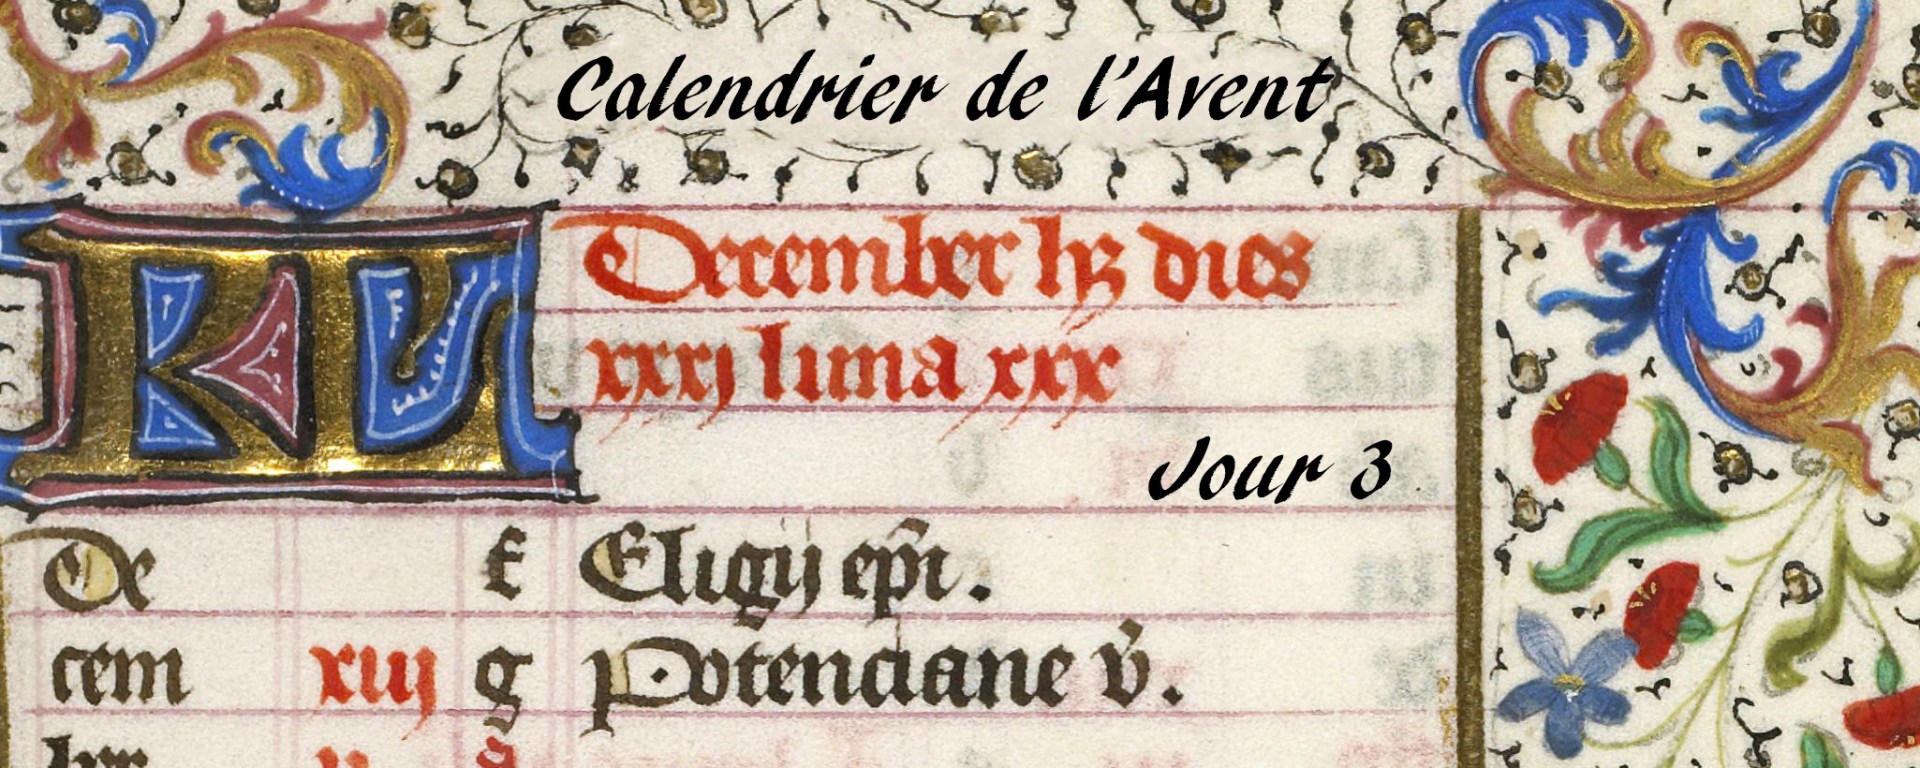 Calendrier de l'Avent
KL December hꝫ dies
xxxj luna xxx
Jour 3
De f Eligij epi.
cem xiij g Potenciane v.